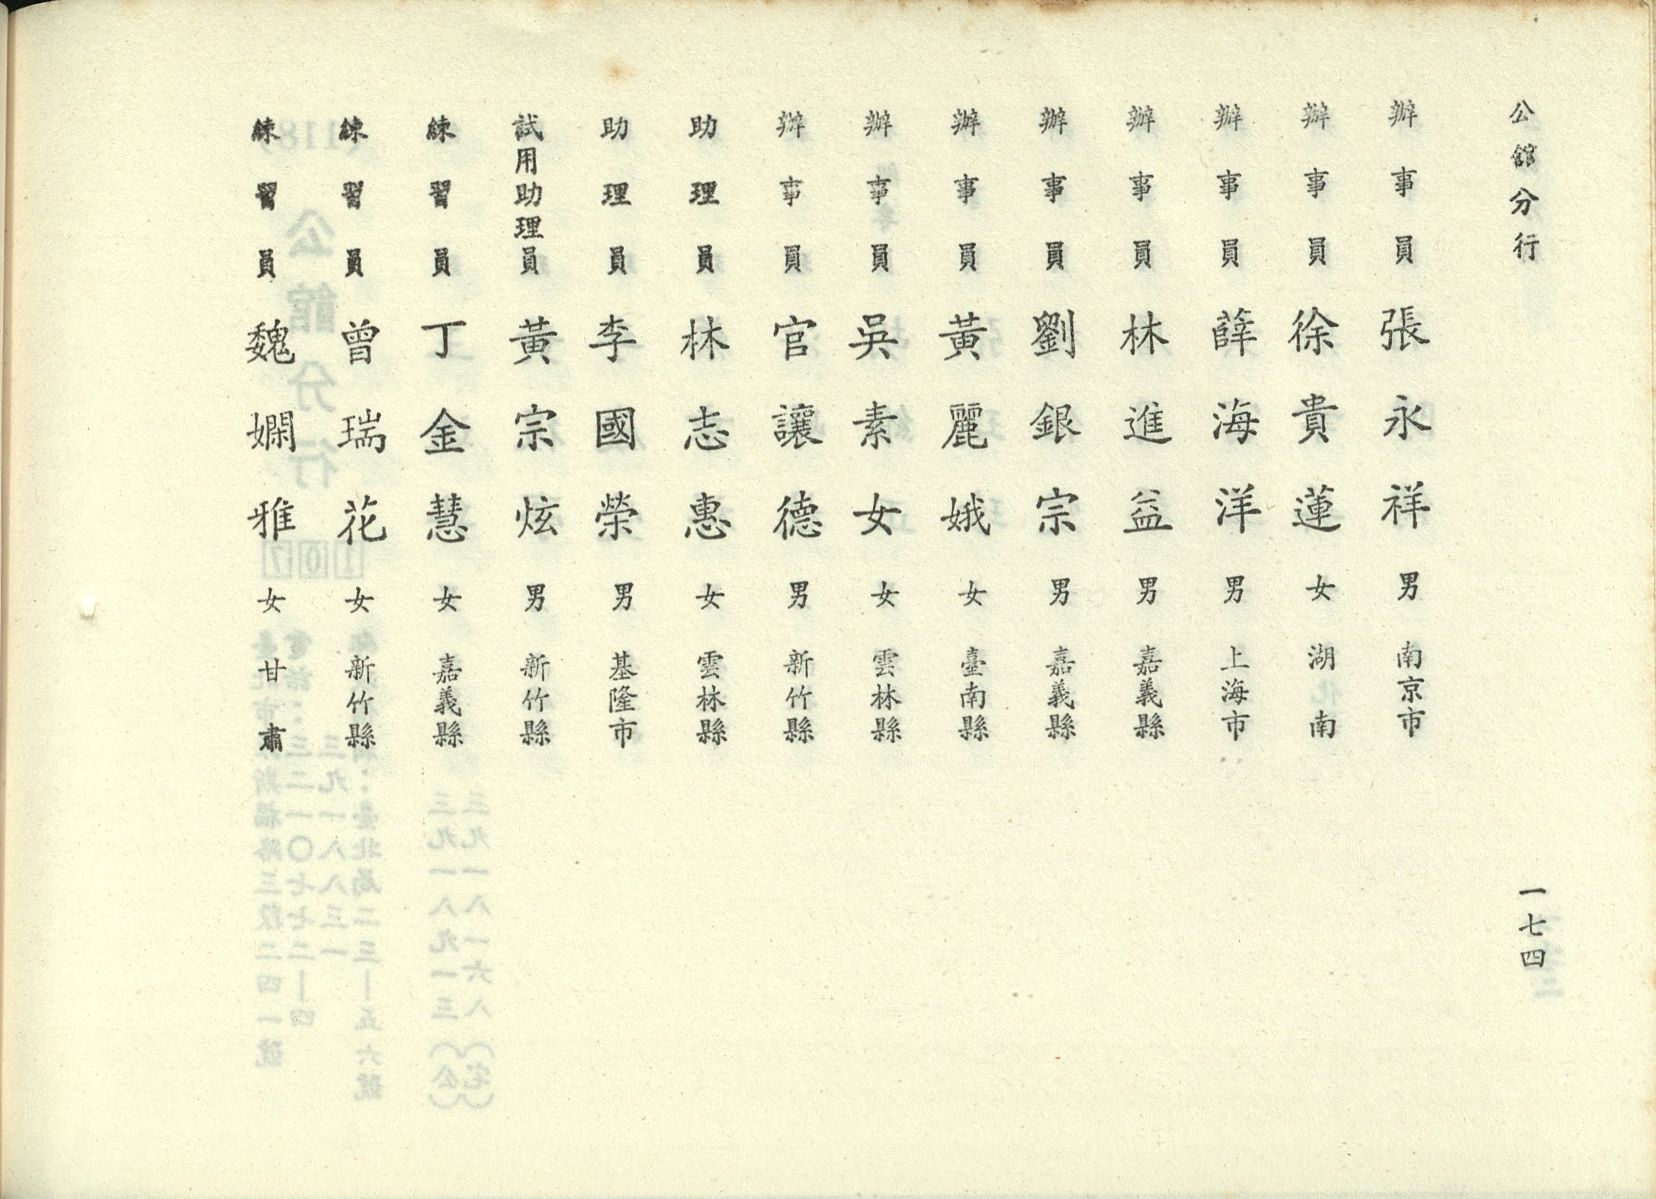 公館分行
一七四
辦事員 張永祥 男 南京市
辦事員 徐貴蓮 女 湖南
辦事員 薛海洋 男 上海市
辦事員 林進益 男 嘉義縣
辦事員 劉銀宗 男 嘉義縣
辦事員 黃麗娥 女 臺南縣
辦事員 吳素女 女 雲林縣
辦事員 官讓德 男 新竹縣
助理員 林志惠 女 雲林縣
助理員 李國榮 男 基隆市
試用助理員 黃宗炫 男 新竹縣
練習員 丁金慧 女 嘉義縣
練習員 曾瑞花 女 新竹縣
練習員 魏嫻雅 女 甘肅